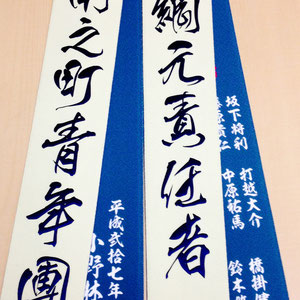 之町青年團
平成弐拾七年
小野林
綱元責任者
坂下将利
原貴仁
打越大介
中原祐馬
橋掛
鈴木